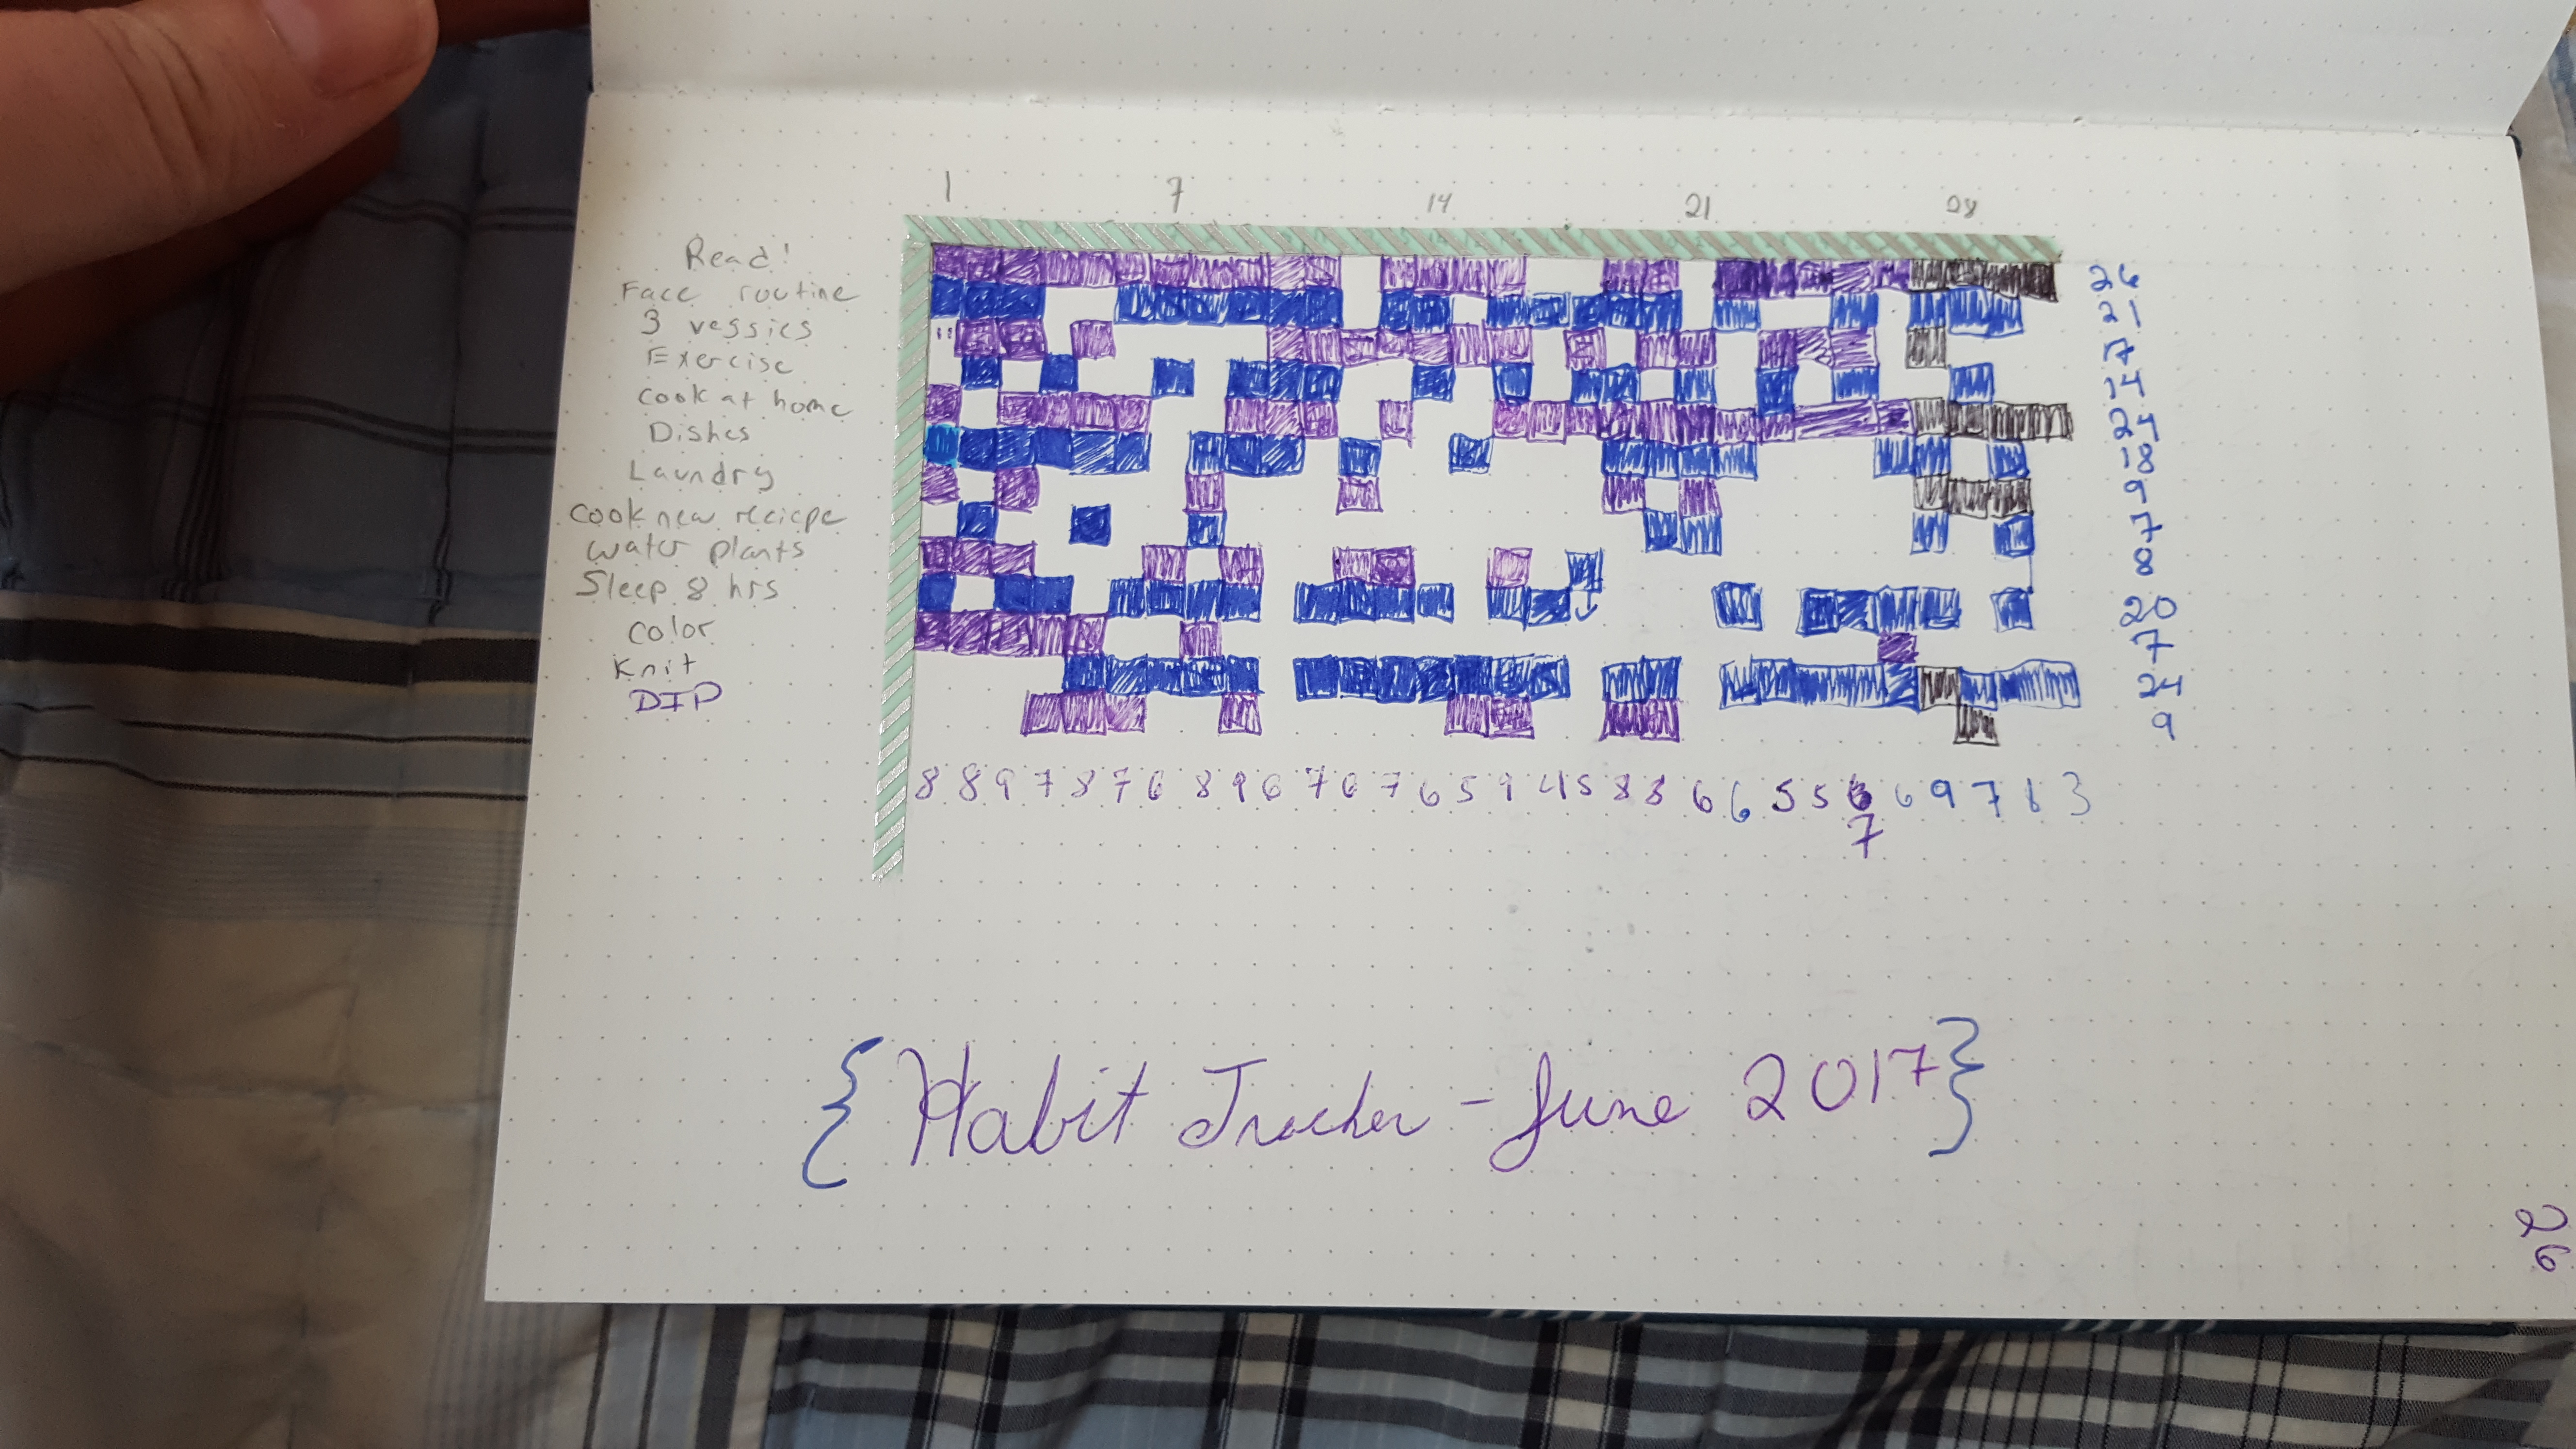 1 7 14 21 28
Read! 26
Face routine 21
3 veggies 17
Exercise 14
Cook at home 24
Dishes 18
Laundry 9
Cook new reciepe 7
water plants 8
Sleep 8 hrs 20
Color 7
Knit 24
DIP 9
8 8 9 7 8 7 6 8 9 6 7 6 7 6 5 9 4 5 8 8 6 6 5 5 6 9 7 3
7
{Habit Tracker - June 2017}
26